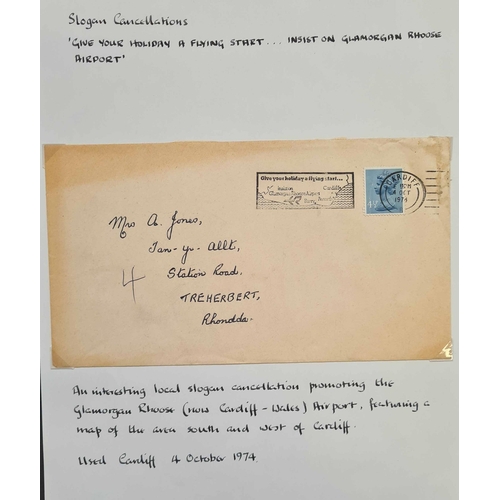 Slogan Cancellations
'GIVE YOUR HOLIDAY A FLYING START... INSIST ON GLAMORGAN RHOOSE
AIRPORT'
Give your holiday a flying start...
CARDIFF
OCT
1974
Mrs A. Jones,
Tan-yr-Allt,
4
Station Road,
TREHERBERT,
Rhondda.
An interesting local slogan cancellation promoting the
Glamorgan Rhoose (now Cardiff-Wales) Airport, featuring a
map of the area south and west of Cardiff.
Used Cardiff 4 October 1974.